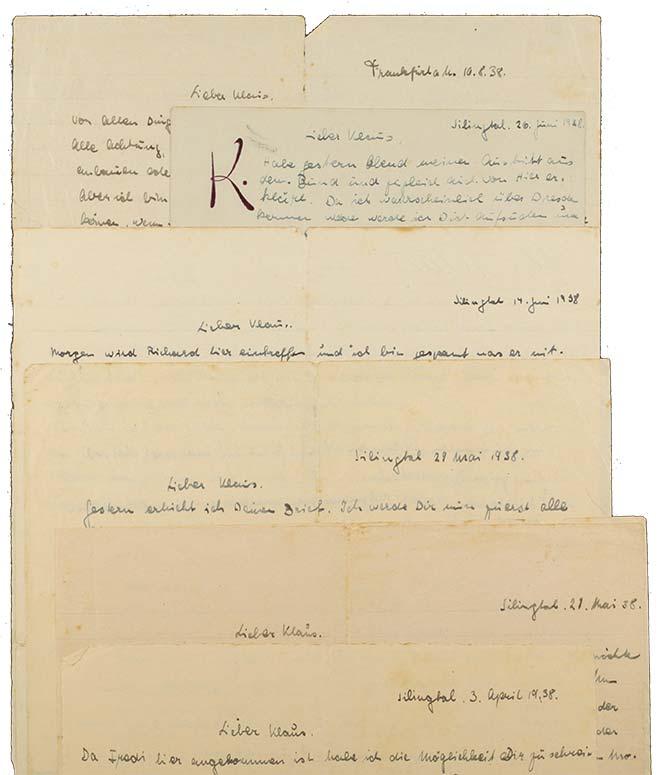 Frankfurt a M. 10.8.38.
Lieber Klaus.
Von allen Ding
Alle Achtung,
Aber ich bin
können, wenn
Silingtal. 26. Juni 1938.
Lieber Klaus,
K.
Habe gestern Abend meinen Austritt aus
dem Bund und zugleich auch von Hier er-
klärt. Da ich wahrscheinlich über Dresden
kommen werde werde ich Dich aufsuchen
Silingtal 14. Juni 1938
Lieber Klaus.
Morgen wird Richard hier eintreffen und ich bin gespannt was er mit-
Silingtal 29 Mai 1938.
Lieber Klaus.
Gestern erhielt ich Deinen Brief. Ich werde Dir nun zuerst alle
Silingtal. 21. Mai 38.
Lieber Klaus.
möchte
der
der
Silingtal. 3. April 1938.
Lieber Klaus.
Da Fredi hier angekommen ist habe ich die Möglichkeit Dir zu schrei-